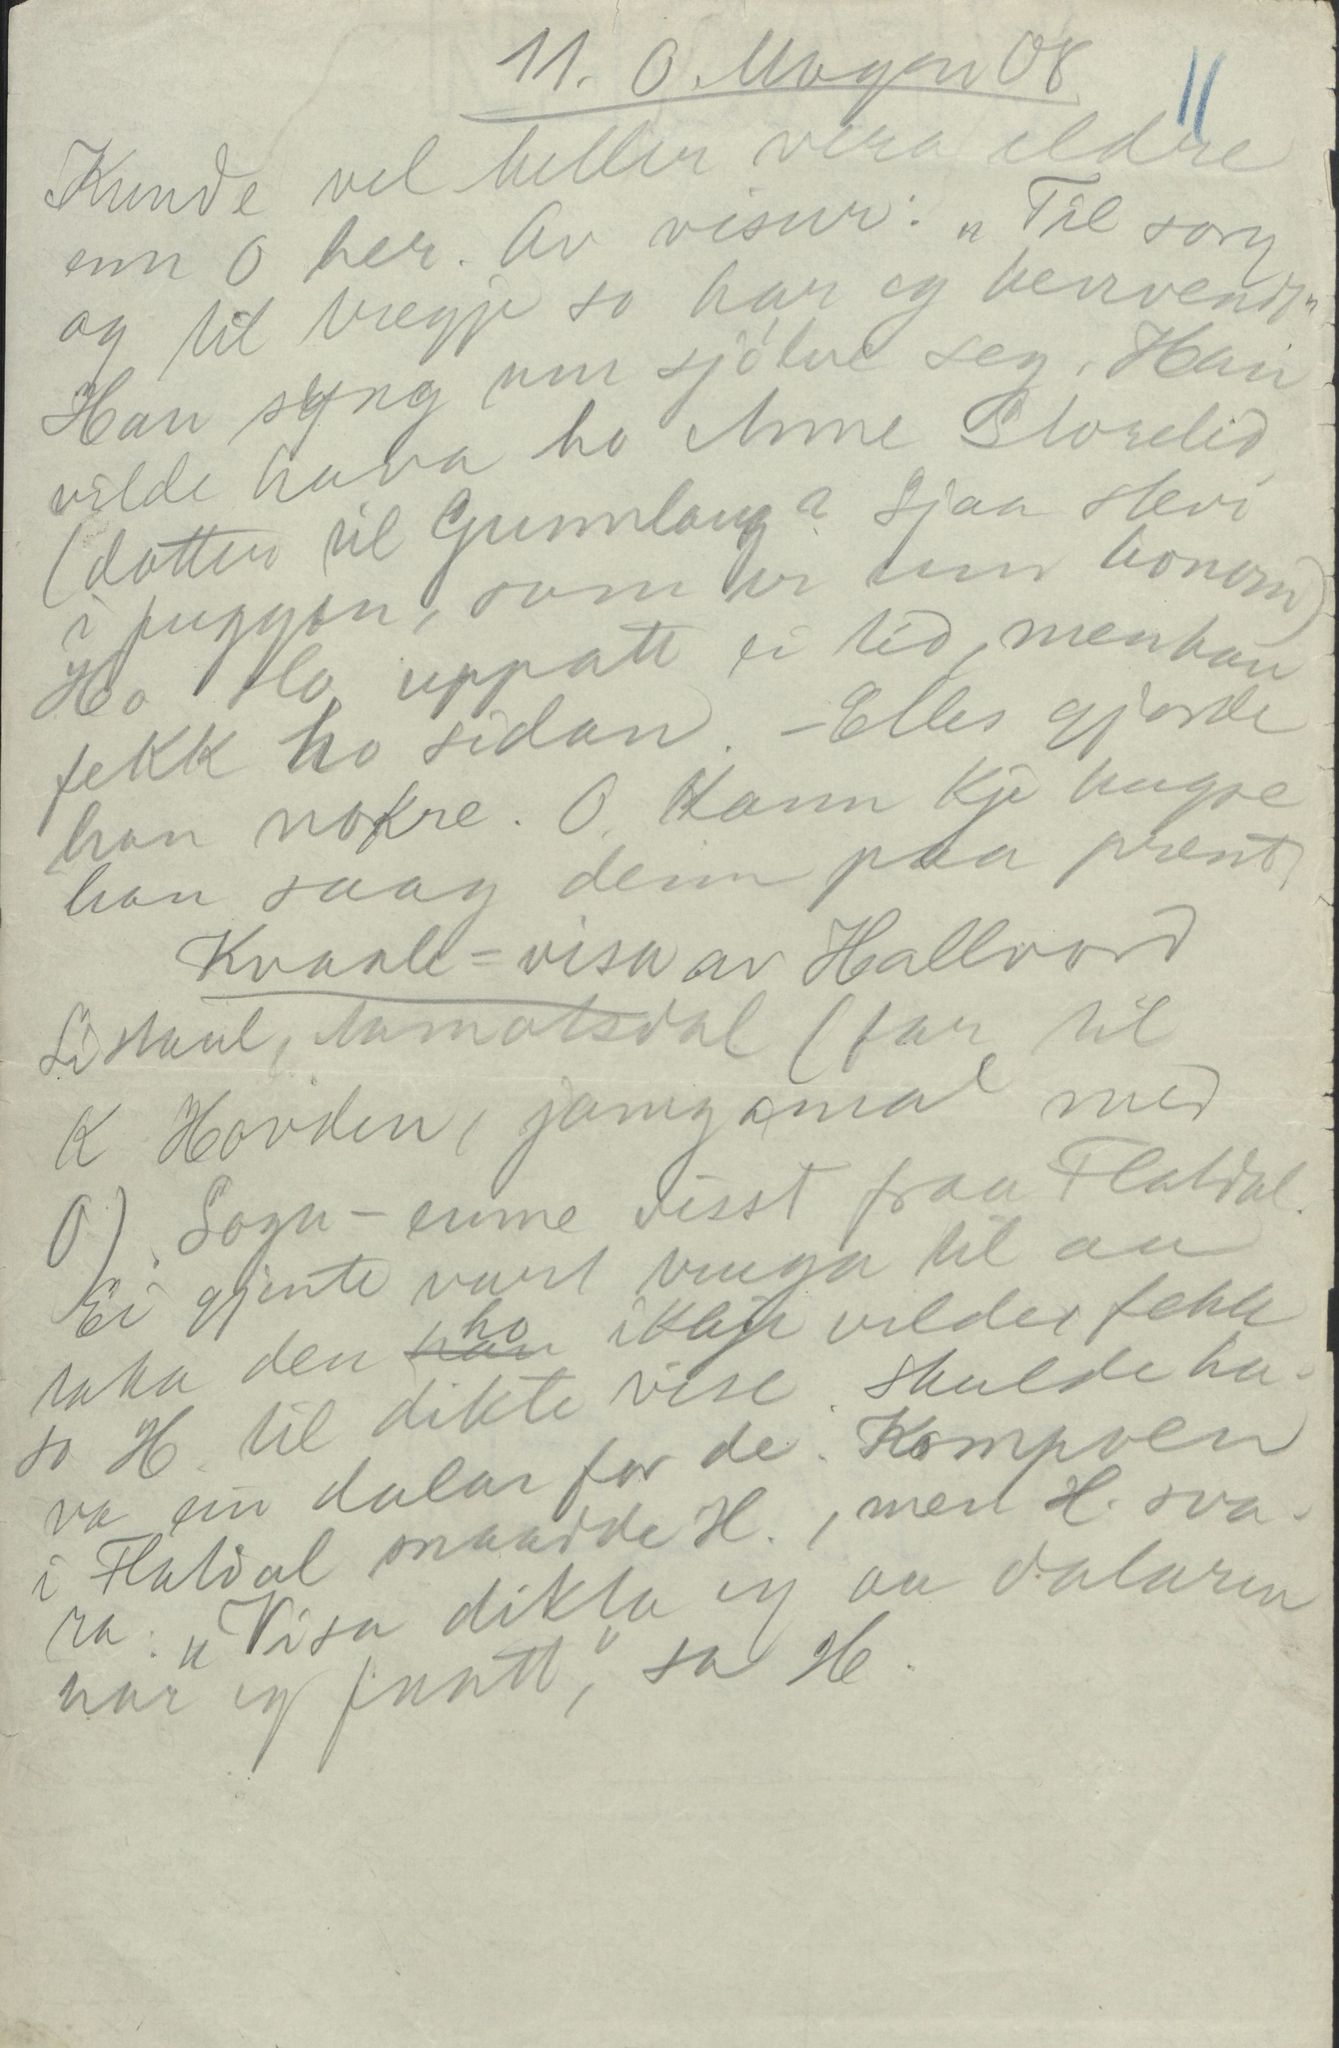 11. O. Mogen 08
11
Kunde vel heller vera eldre
enn O her. Av visur: "Til sorg
og til tregje so har eg henvendt"
Han syng um sjölve seg. Han
vilde hava ho Anne Storelid
(dotter til Gunnlaug? Sjaa stevi
i puggen, som er um honom)
Ho slo uppatt ei tid, men han
fekk ho sidan. - Elles gjorde
han nokre. O. kann kje hugse
han saag deim paa prent.
Kvaale-visa av Hallvord
Listaul, Aamotsdal (far til
K Hovden, jamgamal med
O). Soga-emne visst fraa Flatdal.
Ei gjente vart tvuga til aa
taka den han ho ikkje vilde, fekk
so H. til dikte vise. skulde ha-
va ein dalar for de. Kompoen
i Flatdal snaadde H., men H. sva-
ra. "Visa dikta eg aa dalaren
har eg faatt," sa H.